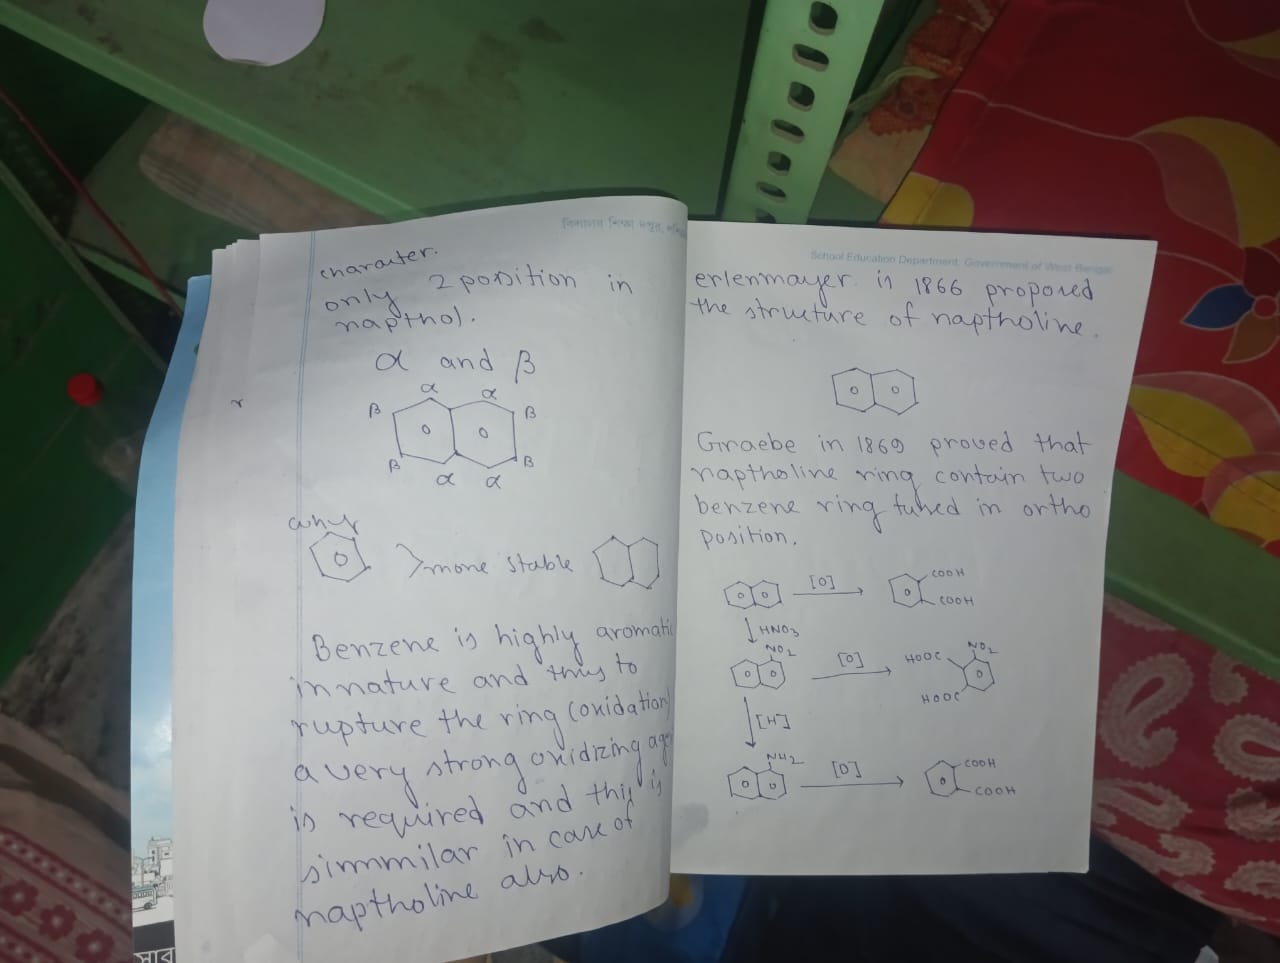 charaiter.
only 2 position in
napthol.
α and β
α α
β β
β β
α α
why
>more stable
Benzene is highly aromati
in nature and thus to
rupture the ring (oxidation)
a very strong oxidizing age
is required and this is
simmilar in case of
naptholine also.
School Education Department, Government of West Bengal
erlenmayer in 1866 proposed
the structure of naptholine.
Graebe in 1869 proved that
naptholine ring contain two
benzene ring fused in ortho
position.
[O] COOH
COOH
HNO3
NO2 [O] HOOC NO2
HOOC
[H]
NH2 [O] COOH
COOH